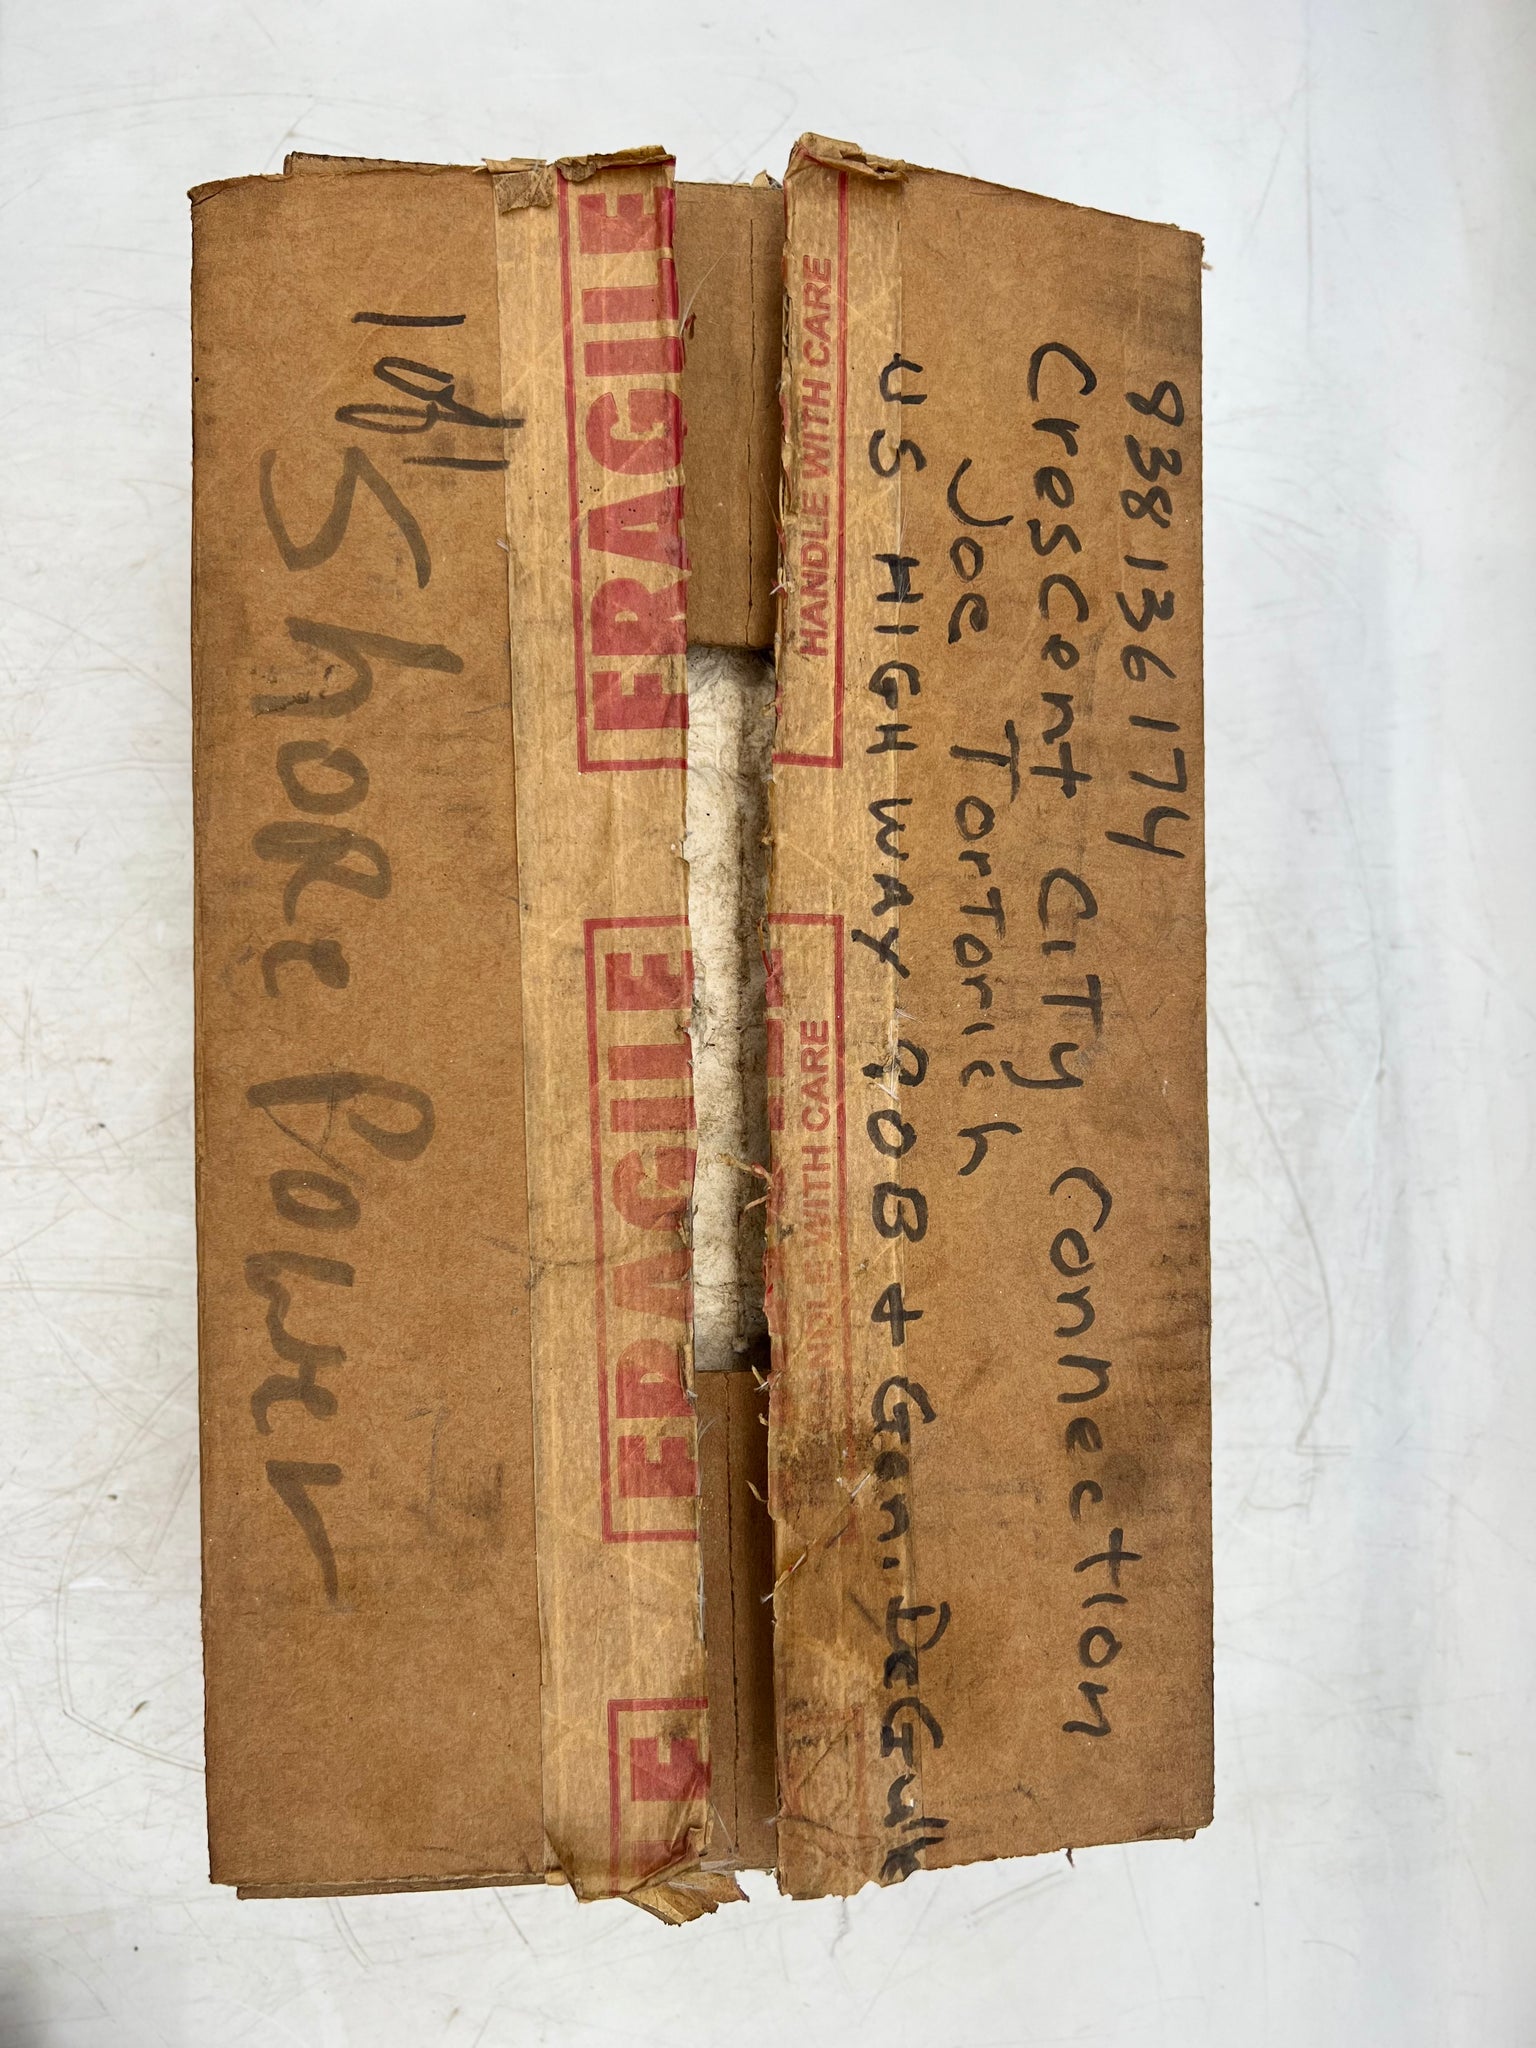 938136174
Crescent CiTy Connection
Joe TorTorich
US HIGHWAY 90B + Gen. DeGulle
HANDLE WITH CARE
HANDLE WITH CARE
FRAGILE
FRAGILE
1 of 1
ShoRe PoweR